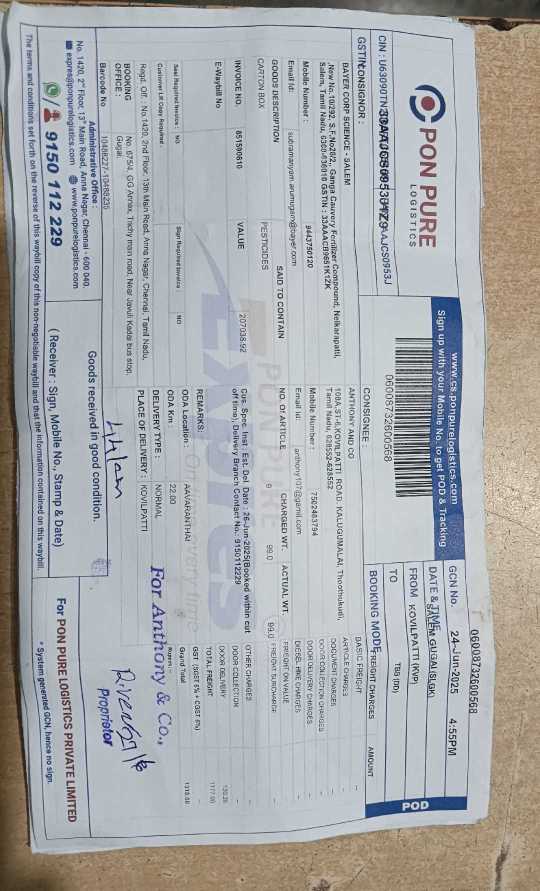 PON PURE
LOGISTICS
www.cs.ponpurelogistics.com
Sign up with your Mobile No. to get POD & Tracking
POD
06008732600568
GCN No. 06008732600568
DATE & TIME 24-Jun-2025 4:55PM
FROM SALEM GUGAI(SLGK)
TO KOVILPATTI (KVP)
BOOKING MODE TBB (DD)
CONSIGNOR :
BAYER CORP SCIENCE - SALEM
Salem, Tamil Nadu,
Mobile Number : 9443750120
Email Id: subramanyam.arumugam@bayer.com
CONSIGNEE :
ANTHONY AND CO
108A,ST-6,KOVILPATTI ROAD, KALUGUMALAI, Thoothukudi,
Tamil Nadu, 628552-628552
Mobile Number : 7502483794
Email id: anthony107@gamil.com
FREIGHT CHARGES AMOUNT
BASIC FREIGHT -
ARTICLE CHARGES -
DOCUMENT CHARGES -
DOOR COLLECTION CHARGES -
DOOR DELIVERY CHARGES -
DIESEL HIKE CHARGES -
FREIGHT ON VALUE -
FREIGHT SURCHARGE -
OTHER CHARGES -
DOOR COLLECTION -
DOOR DELIVERY
TOTAL FREIGHT
Grand Total
GOODS DESCRIPTION SAID TO CONTAIN NO. OF ARTICLE CHARGED WT. ACTUAL WT.
CARTON BOX PESTICIDES 99.0 99.0
INVOICE NO. 851590810 VALUE 207038.92
E-Waybill No
Cus. Spec. Inst : Est. Del. Date : 26-Jun-2025(Booked within cut
off time), Delivery Branch Contact No.: 9150112229
REMARKS:
Seal Required Invoice : NO Sign Required Invoice : NO
Customer LR Copy Required :
ODA Location : AAVARANTHAI
ODA Km : 22.00
DELIVERY TYPE : NORMAL
PLACE OF DELIVERY : KOVILPATTI
Regd. Off : No.1420, 2nd Floor, 13th Main Road, Anna Nagar, Chennai, Tamil Nadu,
BOOKING OFFICE : No. 675/4, GG Annex, Trichy main road, Near Javuli Kadai bus stop,
Gugai,
Barcode No 10488227-10488235
For Anthony & Co.,
Proprietor
Administrative Office :
No. 1420, 2nd Floor, 13th Main Road, Anna Nagar, Chennai - 600 040.
express@ponpurelogistics.com www.ponpurelogistics.com
9150 112 229
Goods received in good condition.
( Receiver : Sign, Mobile No., Stamp & Date)
For PON PURE LOGISTICS PRIVATE LIMITED
* System generated GCN, hence no sign.
The terms and conditions set forth on the reverse of this waybill copy of this non-negotiable waybill and that the information contained on this waybill